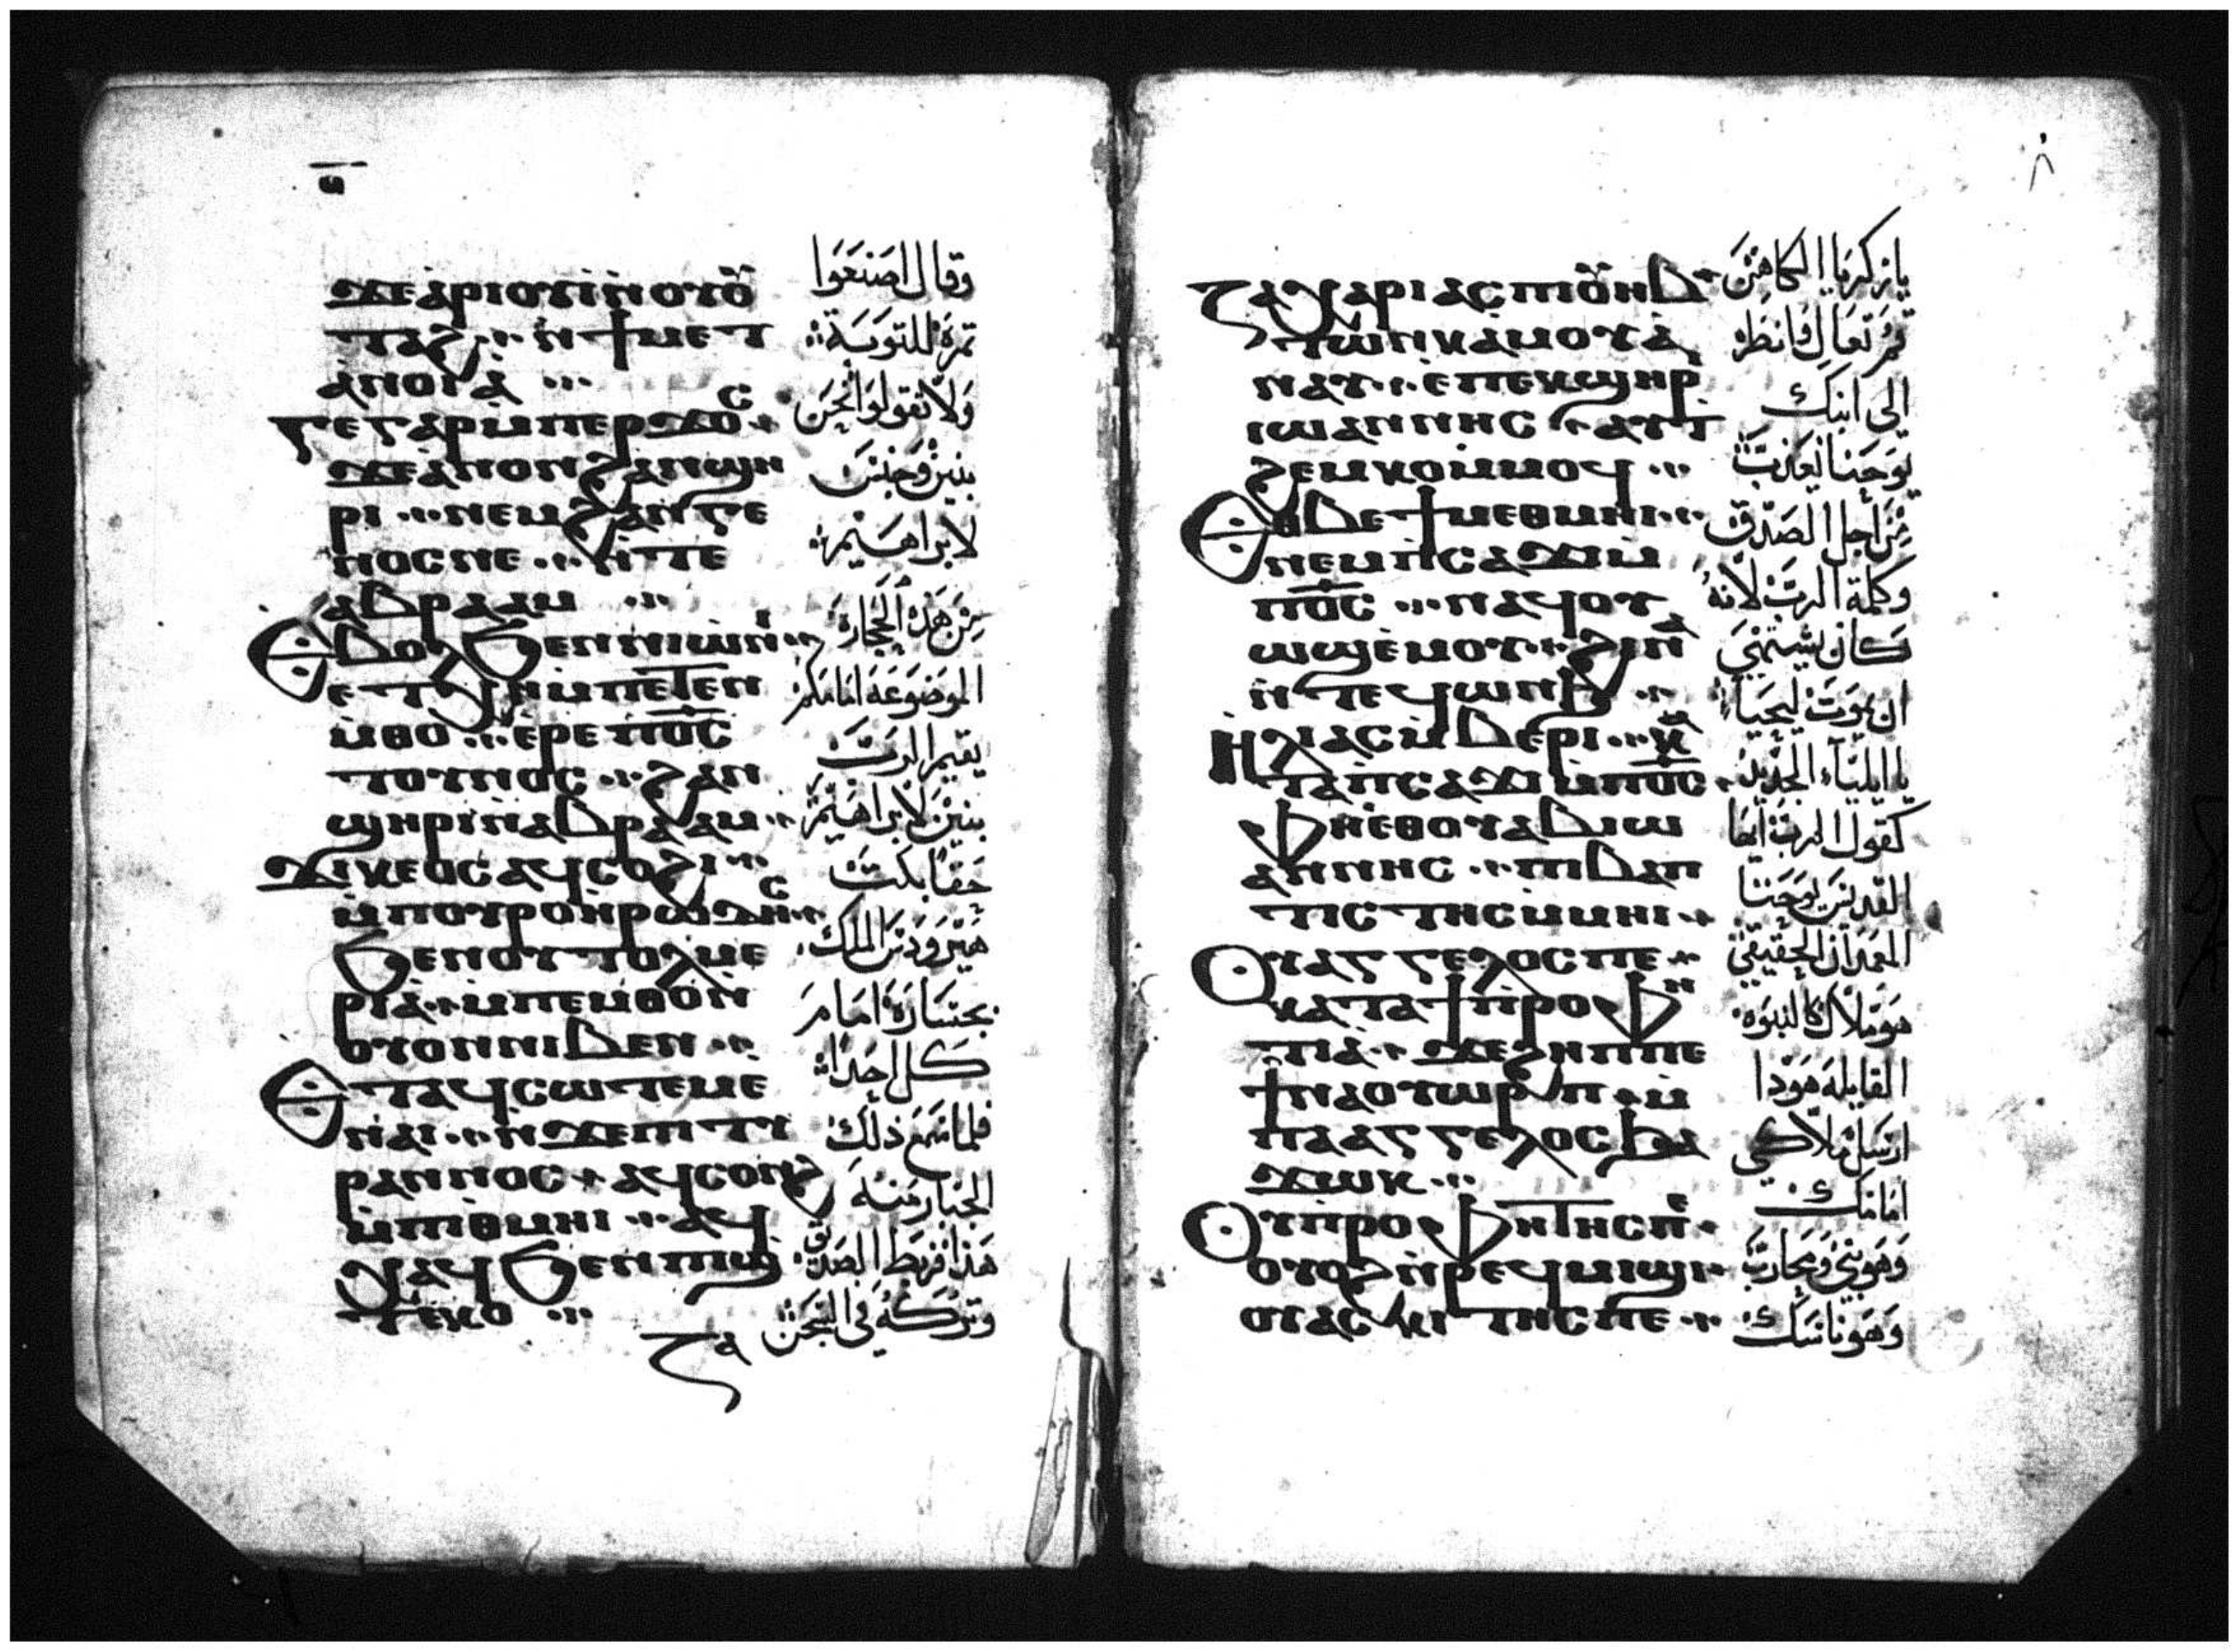 ⲋ
ϫⲉ ⲁⲣⲓⲟⲩⲓ ⲛ̀ⲟⲩⲟ̅
ⲧⲁϩ ⲛ̀ϯⲙⲉⲧ
ⲁⲛⲟⲓⲁ
ⲅⲉ ⲅⲁⲣ ⲙⲡⲉⲣϫⲟⲥ
ϫⲉ ⲁⲛⲟⲛ ϩⲁⲛϣⲏ
ⲣⲓ ⲛⲉⲙ ϩⲁⲛⲅⲉ
ⲛⲟⲥ ⲛⲉ ⲛ̀ⲧⲉ
ⲁⲃⲣⲁⲁⲙ
Ⲉⲃⲟⲗ ϧⲉⲛ ⲛⲓⲱⲛⲓ
ⲉⲧⲭⲏ ⲙⲡⲉⲧⲉⲛ
ⲙ̀ⲑⲟ ⲉⲣⲉ ⲡⲟ̅ⲥ̅
ⲧⲟⲩⲛⲟⲥ ϩⲁⲛ
ϣⲏⲣⲓ ⲛⲁⲃⲣⲁⲁⲙ
Ⲇⲓⲕⲉⲟⲥ ⲁϥⲥⲟϩⲓ
ⲙ̀ⲡⲟⲩⲣⲟ ⲏⲣⲱⲇⲏⲥ
ϧⲉⲛ ⲟⲩⲧⲟⲗⲙⲉ
ⲣⲓⲁ ⲙⲡⲉⲙⲑⲟ ⲛ
ⲟⲩⲟⲛ ⲛⲓⲃⲉⲛ
Ⲉⲧⲁϥⲥⲱⲧⲉⲙ ⲉ
ⲛⲁⲓ ⲛ̀ϫⲉ ⲡⲓⲧⲩ
ⲣⲁⲛⲛⲟⲥ ⲁϥⲥⲟⲛϩ
ⲙ̀ⲡⲓⲑⲙⲏⲓ ⲁϥ
ⲭⲁϥ ϧⲉⲛ ⲡⲓϣ
ⲧⲉⲕⲟ
وقال اصنعوا
ثمرة للتوبة
ولا تقولوا نحن
بنين وجنس
لابراهيم
من هذه الحجارة
الموضوعة امامكم
يقيم الرب
بنين لابراهيم
حقا بكت
هيرودس الملك
بجسارة امام
كل احدا
فلما سمع ذلك
الجبار منه
هذا فربط الصديق
وتركه في السجن
٨
ⲍⲁⲭⲁⲣⲓⲁⲥ ⲡⲓⲟⲩⲏⲃ
ⲧⲱⲛⲕ ⲁⲙⲟⲩ ⲁ
ⲛⲁⲩ ⲉⲡⲉⲕϣⲏⲣⲓ
ⲓⲱⲁⲛⲛⲏⲥ ⲁⲩⲧ
ϩⲉⲙⲕⲟ ⲙ̀ⲙⲟϥ
Ⲉⲑⲃⲉ ϯⲙⲉⲑⲙⲏⲓ
ⲛⲉⲙ ⲡ̀ⲥⲁϫⲓ ⲙ
ⲡⲟ̅ⲥ̅ ⲛⲁϥⲟⲩ
ⲱϣ ⲉⲙⲟⲩ ϩⲓⲛⲁ
ⲛ̀ⲧⲉϥⲱⲛϧ
Ⲏⲗⲓⲁⲥ ⲙ̀ⲃⲉⲣⲓ ⲕⲁ
ⲧⲁ ⲡ̀ⲥⲁϫⲓ ⲙ̀ⲡⲟ̅ⲥ̅
Ⲫⲏⲉⲑⲟⲩⲁⲃ ⲓⲱ
ⲁⲛⲛⲏⲥ ⲡⲓⲃⲁⲡ
ⲧⲓⲥⲧⲏⲥ ⲙ̀ⲙⲏⲓ
Ⲟⲩⲁⲅⲅⲉⲗⲟⲥ ⲡⲉ
ⲕⲁⲧⲁ ϯⲡⲣⲟⲫⲏ
ⲧⲓⲁ ϫⲉ ϩⲏⲡⲡⲉ
ϯⲛⲁⲟⲩⲱⲣⲡ ⲙ̀
ⲡⲁⲁⲅⲅⲉⲗⲟⲥ ϧⲁ
ϫⲱⲕ
Ⲟⲩⲡⲣⲟⲫⲏⲧⲏⲥ ⲡⲉ
ⲟⲩⲟϩ ⲛ̀ⲣⲉϥⲙⲓϣⲓ
ⲟⲩⲁⲥⲕⲓⲧⲏⲥ ⲡⲉ
يا زكريا الكاهن
قم تعال فانظر
الى ابنك
يوحنا يعذب
من اجل الصدق
وكلمة الرب لانه
كان يشتهي
ان يموت ليحيا
يا ايلياء الجديد
كقول الرب ايها
القديس يوحنا
المعمدان الحقيقي
هو ملاك كالنبوه
القايلة هوذا
ارسل ملاكي
امامك
وهو نبي ومحارب
وهو ناسك